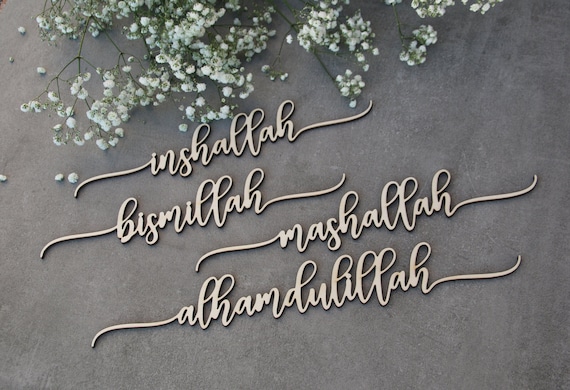 inshallah
bismillah
mashallah
alhamdulillah